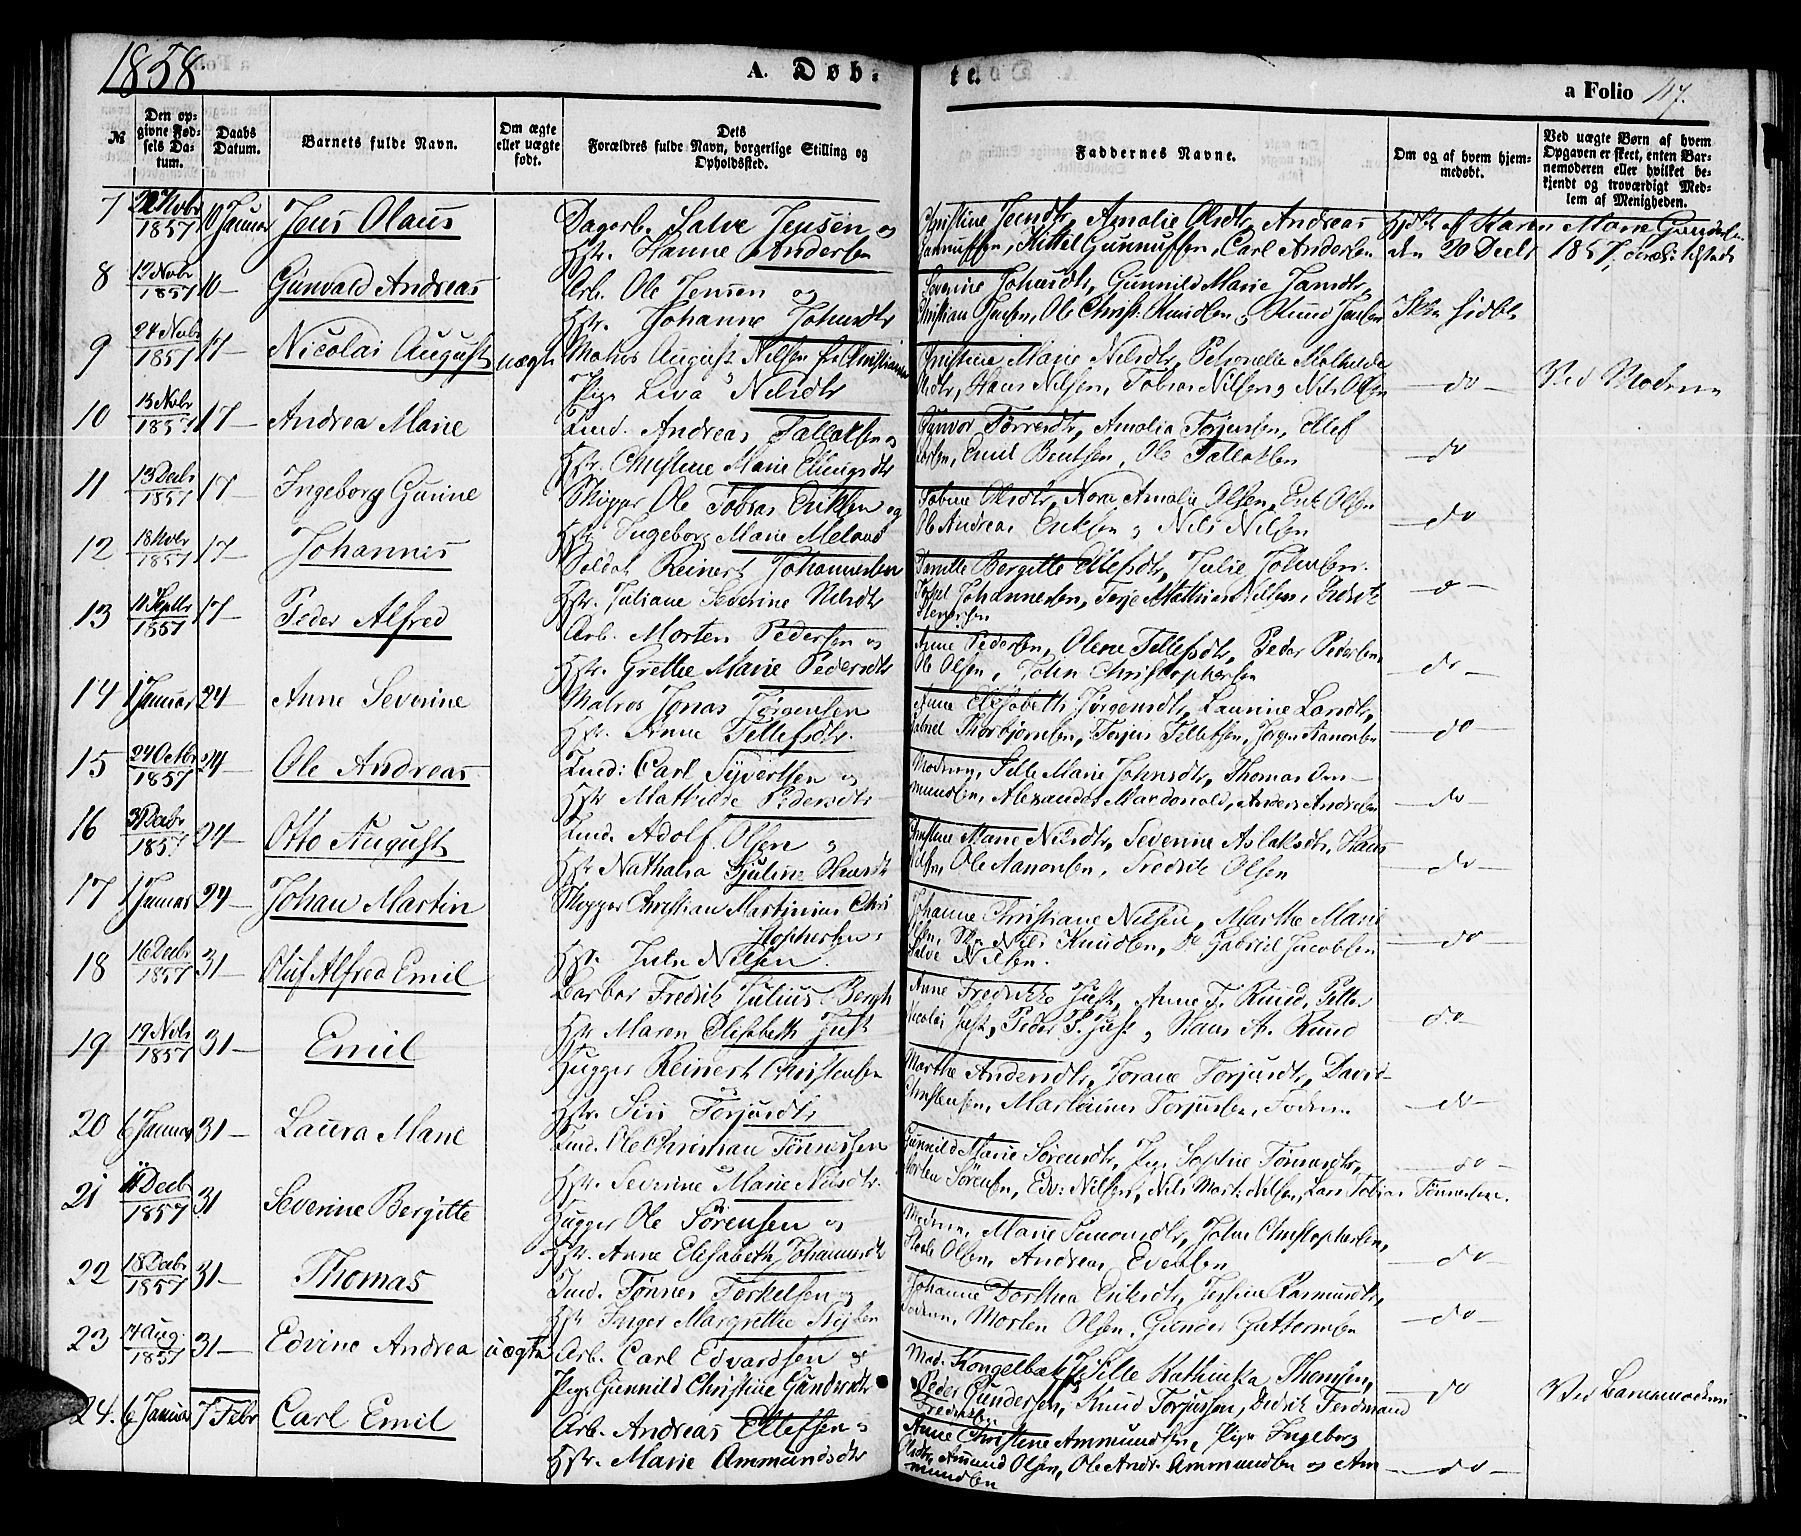 1858
A. Døb-
te.
a Folio 117.
№
Den opgivne Fødsels Datum.
Daabs Datum.
Barnets fulde Navn.
Om ægte eller uægte født.
Dets Forældres fulde Navn, borgerlige Stilling og Opholdssted.
Faddernes Navne.
Om og af hvem hjemmedøbt.
Ved uægte Børn af hvem Opgaven er skeet, enten Barnemoderen eller hvilket bekjendt og troværdigt Medlem af Menigheden.
7 22 Novbr 1857 10 Januar Jens Olaus Dagarb. Salve Jensen og
Hstr. Hanne Andersen
Christine Jensdtr, Amalie Olsdtr, Andreas
Gunnufsen, Kittel Gunnufsen, Carl Andersen
Hjdbt af Karen Marie Gundersen
den 20 Decbr 1857
8 12 Novbr 1857 10 — Gunvald Andreas Arb. Ole Jensen og
Hstr. Johanne Johnsdtr
Severine Johnsdtr, Gunnild Marie Jansdtr,
Christian Jensen, Ole Christ. Knudsen, Knud Jensen
Ikke hjdbt
9 24 Novbr 1857 17 — Nicolai August uægte Matros August Nilsen fra Christiansand
Pige Liva Nilsdtr
Christine Marie Nilsdtr, Petronelle Mathilde
Nilsdtr, Hans Nilsen, Tobias Nilsen, Nils Olsen
— do — Ved Moderen
10 13 Novbr 1857 17 — Andrea Marie Tmd. Andreas Tallaksen og
Hstr. Christine Marie Ellingsdtr
Gunvor Tørresdtr, Amalia Torjusen, Ellef
Emil Bentsen, Ole Tallaksen
do
11 13 Decbr 1857 17 Ingeborg Gurine Skipper Ole Tobias Eriksen og
Hstr. Ingeborg Marie Meland
Tobine Olsdtr, Nora Amalia Olsen, Erik Olsen
Ole Andreas Eriksen, Nils Nilsen
do
12 18 Novbr 1857 17 Johannes Soldat Reinert Johannesen
Hstr. Juliane Severine Nilsdtr
Bergitte Ellefsdtr, Julie Johnsen
Johannesen, Terje Mathias Nilsen,
do
13 11 Septbr 1857 17 — Peder Alfred Arb. Morten Pedersen og
Hstr. Grethe Marie Pedersdtr
Anne Pedersen, Olene Tellefsdtr, Peder Pedersen,
Ole Olsen, John Christophersen
do —
14 1 Januar 24 — Anne Severine Matros Jonas Jørgensen
Hstr. Anne Tellefsdtr.
Anne Elisabeth Jørgensdtr, Laurine Larsdtr,
Thorbjørnsen, Torjus Tellefsen, Jørgen Aanonsen
do —
15 24 Octbr 1857 24 — Ole Andreas Tmd: Carl Syvertsen og
Hstr Mathilde Pedersdtr
Moderen, Sille Marie Johnsdtr, Thomas Om-
mundsen, Alexander Macdonald, Anders Andersen
do —
16 3 Decbr 1857 24 — Otto August Tmd. Adolf Olsen og
Hstr Nathalia Gjuline
Christine Marie Nilsdtr, Severine Aslaksdtr, Hans
Nilsen, Ole Aanonsen, Fredrik Olsen
do —
17 1 Januar 24 — Johan Martin Skipper Christian Martinius Chri-
stophersen
Hstr. Julie Nilsen
Johanne Christiane Nilsen, Marthe Marie
Nils Knudsen, Gabriel Jacobsen
Salve Nilsen.
do —
18 16 Decbr 1857 31 — Oluf Alfred Emil Barber Fredrik Julius Bergh
Hstr Maren Elisabeth Just
Anne Fredrikke Just, Anne T. Ruud, Petter
Nicolai Just, Peder P. Just, Hans A. Ruud
do
19 19 Novbr 1857 31 — Emil Hugger Reinert Christensen
Hstr. Siri Torjusdtr
Marthe Andersdtr, Torane Torjusdtr, David
Christensen, Martinius Torjusen, Faderen
— do —
20 6 Januar 31 — Laura Marie Tmd. Ole Christian Tønnessen
Hstr. Severine Marie Nilsdtr.
Gunnild Marie Sørensdtr, Pige Sophie Tønnesdtr,
Morten Sørensen, Edv: Nilsen, Nils Mart. Nilsen, Lars Tobias Tønnesen.
do —
21 11 Decb 1857 31 Severine Bergitte Hugger Ole Sørensen og
Hstr. Anne Elisabeth Johannesdtr
Moderen, Marie Simonsdtr, John Christophersen,
Olsen, Andreas Evensen
do —
22 18 Decbr 1857 31 — Thomas Tmd. Tønnes Terkelsen og
Hstr Inger Margrethe
Johanne Dorthea Eriksdtr, Josefine Rasmusdtr,
Faderen, Morten Olsen, Gunder Guttormsen
do —
23 14 Aug. 1857 31 — Edvine Andrea uægte Arb. Carl Edvardsen og
Pige Gunnild Christine Gundersdtr
Mad. Kongelbæk, Pige Sille Kathinka Thomsen,
Peder Gundersen, Knud Torjussen, Didrik Ferdinand
Fredriksen
do Ved Barnemoderen
24. 6 Januar 7 Febr Carl Emil Arb. Andreas Ellefsen og
Hstr. Marie Ammundsdtr
Anne Christine Ammundsen, Pige Ingeborg
Olsdtr, Amund Olsen, Ole Andr. Ammundsen og Am-
mundsen
— do —